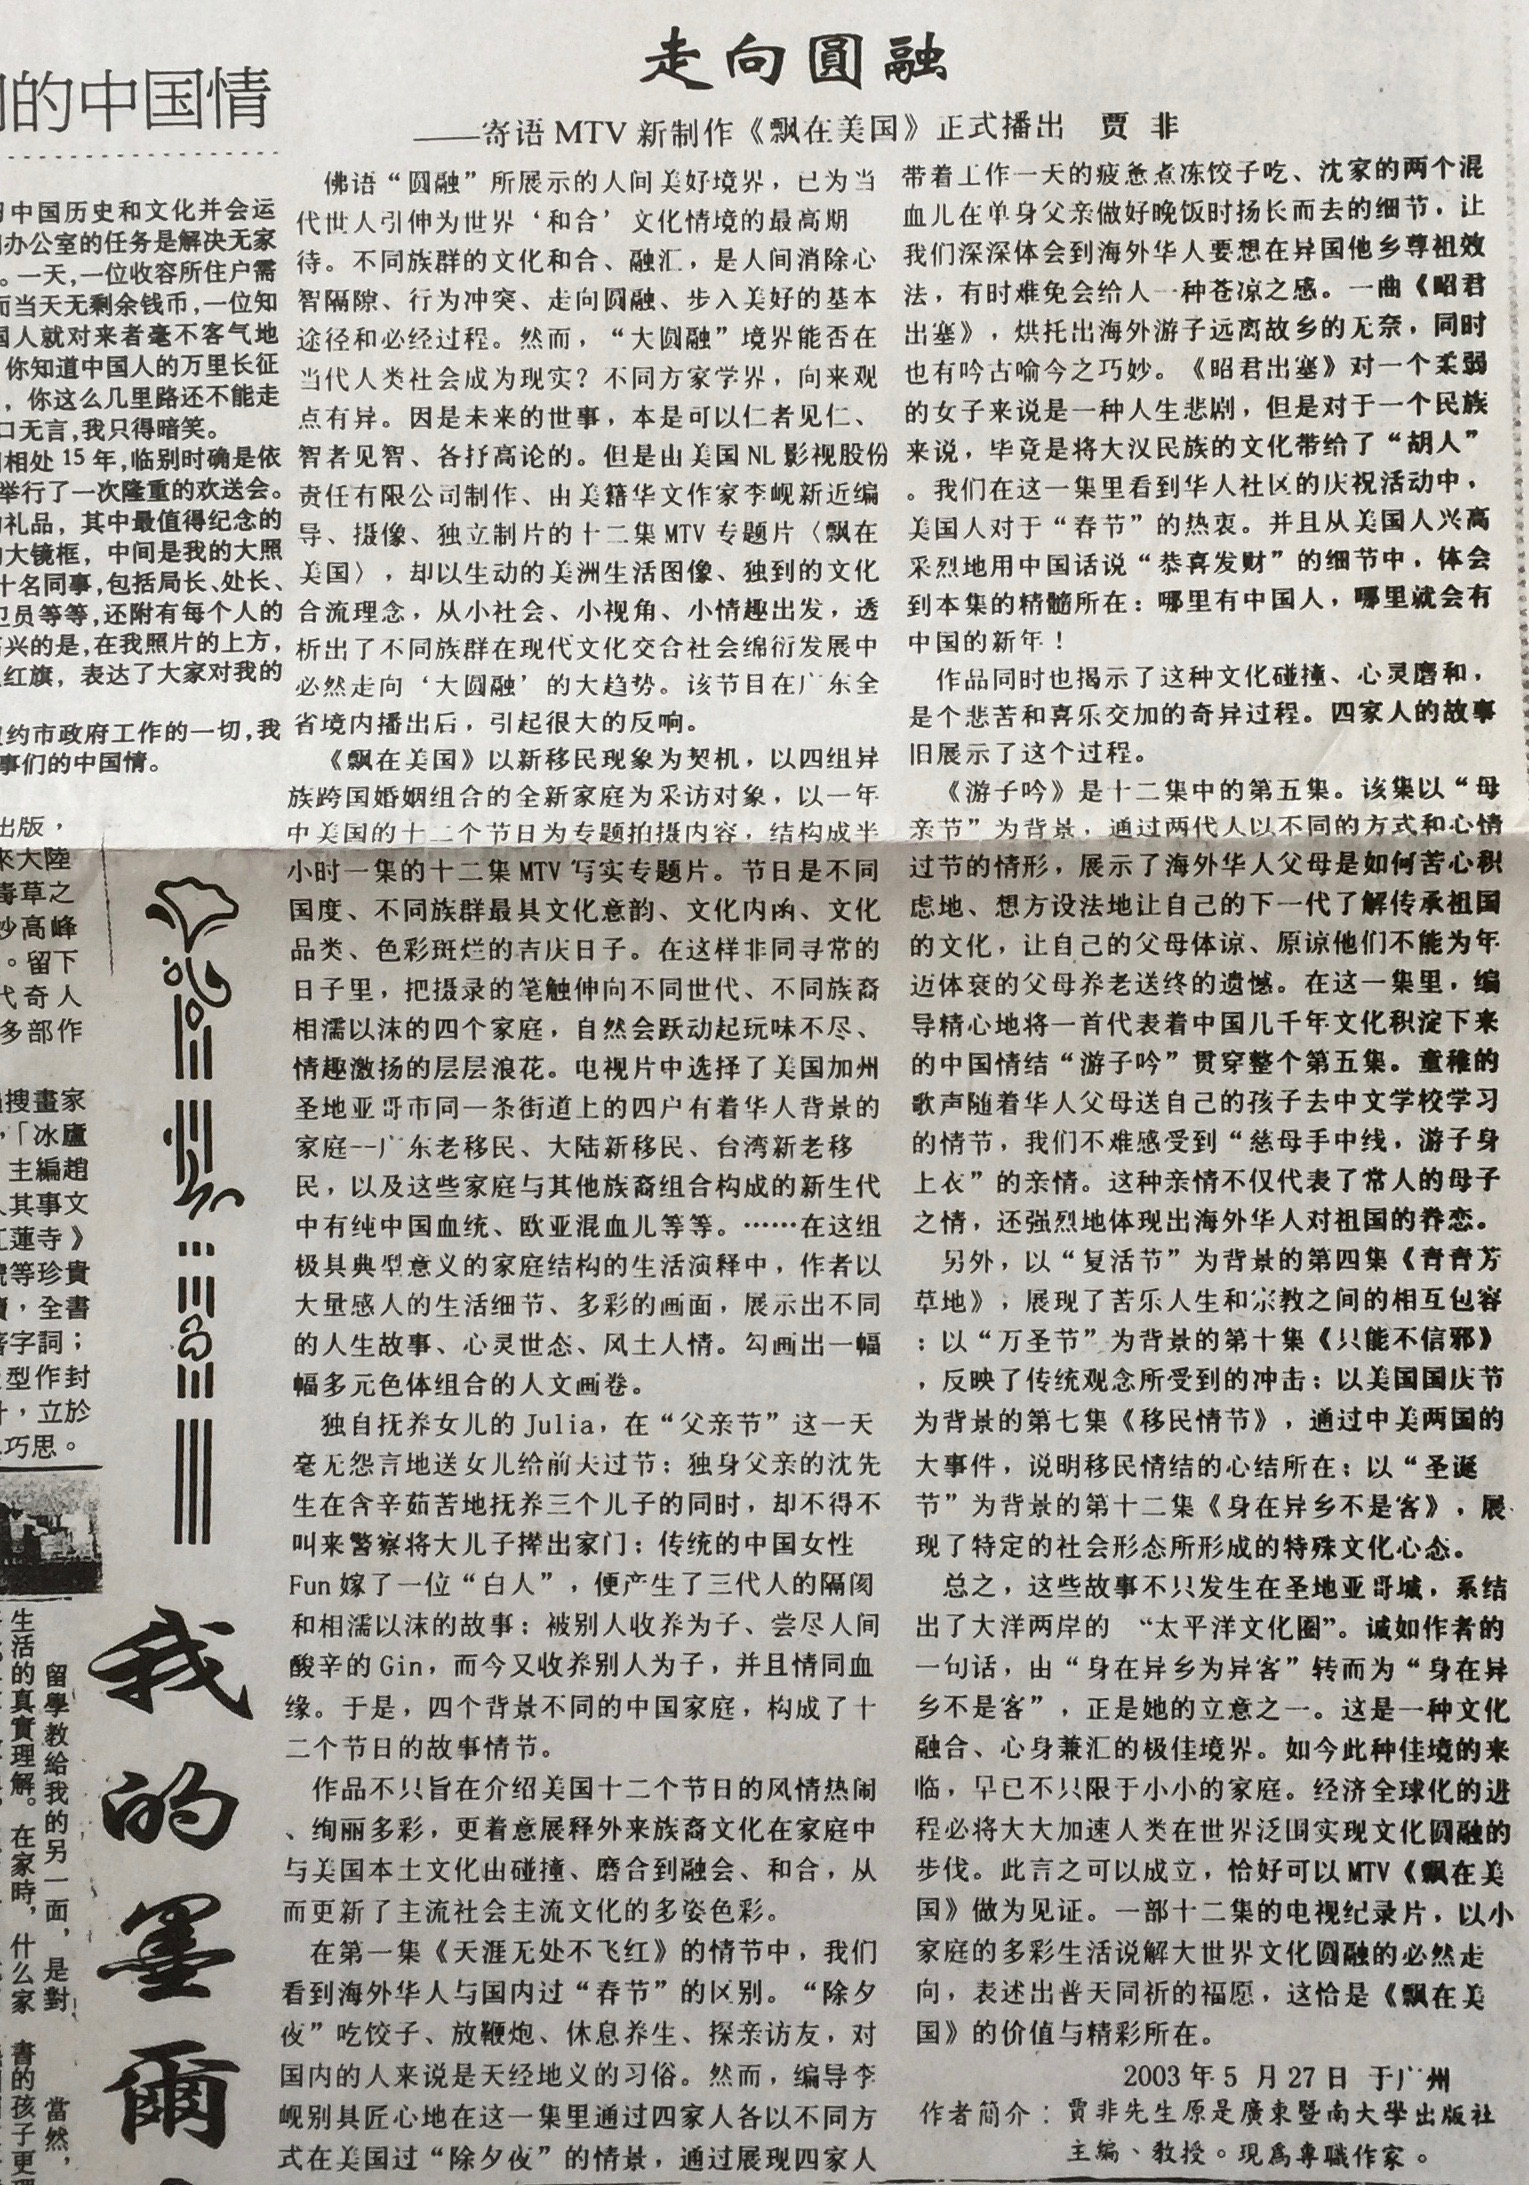 走向圓融
——寄语MTV新制作《飘在美国》正式播出 贾非
佛语“圆融”所展示的人间美好境界，已为当
代世人引伸为世界‘和合’文化情境的最高期
待。不同族群的文化和合、融汇，是人间消除心
智隔隙、行为冲突、走向圆融、步入美好的基本
途径和必经过程。然而，“大圆融”境界能否在
当代人类社会成为现实？不同方家学界，向来观
点有异。因是未来的世事，本是可以仁者见仁、
智者见智、各抒高论的。但是由美国NL影视股份
责任有限公司制作、由美籍华文作家李岘新近编
导、摄像、独立制片的十二集MTV专题片〈飘在
美国〉，却以生动的美洲生活图像、独到的文化
合流理念，从小社会、小视角、小情趣出发，透
析出了不同族群在现代文化交合社会绵衍发展中
必然走向‘大圆融’的大趋势。该节目在广东全
省境内播出后，引起很大的反响。
《飘在美国》以新移民现象为契机，以四组异
族跨国婚姻组合的全新家庭为采访对象，以一年
中美国的十二个节日为专题拍摄内容，结构成半
小时一集的十二集MTV写实专题片。节日是不同
国度、不同族群最具文化意韵、文化内函、文化
品类、色彩斑烂的吉庆日子。在这样非同寻常的
日子里，把摄录的笔触伸向不同世代、不同族裔
相濡以沫的四个家庭，自然会跃动起玩味不尽、
情趣激扬的层层浪花。电视片中选择了美国加州
圣地亚哥市同一条街道上的四户有着华人背景的
家庭--广东老移民、大陆新移民、台湾新老移
民，以及这些家庭与其他族裔组合构成的新生代
中有纯中国血统、欧亚混血儿等等。……在这组
极具典型意义的家庭结构的生活演释中，作者以
大量感人的生活细节、多彩的画面，展示出不同
的人生故事、心灵世态、风土人情。勾画出一幅
幅多元色体组合的人文画卷。
独自抚养女儿的Julia，在“父亲节”这一天
毫无怨言地送女儿给前夫过节；独身父亲的沈先
生在含辛茹苦地抚养三个儿子的同时，却不得不
叫来警察将大儿子撵出家门；传统的中国女性
Fun嫁了一位“白人”，便产生了三代人的隔阂
和相濡以沫的故事；被别人收养为子、尝尽人间
酸辛的Gin，而今又收养别人为子，并且情同血
缘。于是，四个背景不同的中国家庭，构成了十
二个节日的故事情节。
作品不只旨在介绍美国十二个节日的风情热闹
、绚丽多彩，更着意展释外来族裔文化在家庭中
与美国本土文化由碰撞、磨合到融会、和合，从
而更新了主流社会主流文化的多姿色彩。
在第一集《天涯无处不飞红》的情节中，我们
看到海外华人与国内过“春节”的区别。“除夕
夜”吃饺子、放鞭炮、休息养生、探亲访友，对
国内的人来说是天经地义的习俗。然而，编导李
岘别具匠心地在这一集里通过四家人各以不同方
式在美国过“除夕夜”的情景，通过展现四家人
带着工作一天的疲惫煮冻饺子吃、沈家的两个混
血儿在单身父亲做好晚饭时扬长而去的细节，让
我们深深体会到海外华人要想在异国他乡尊祖效
法，有时难免会给人一种苍凉之感。一曲《昭君
出塞》，烘托出海外游子远离故乡的无奈，同时
也有吟古喻今之巧妙。《昭君出塞》对一个柔弱
的女子来说是一种人生悲剧，但是对于一个民族
来说，毕竟是将大汉民族的文化带给了“胡人”
。我们在这一集里看到华人社区的庆祝活动中，
美国人对于“春节”的热衷。并且从美国人兴高
采烈地用中国话说“恭喜发财”的细节中，体会
到本集的精髓所在：哪里有中国人，哪里就会有
中国的新年！
作品同时也揭示了这种文化碰撞、心灵磨和，
是个悲苦和喜乐交加的奇异过程。四家人的故事
旧展示了这个过程。
《游子吟》是十二集中的第五集。该集以“母
亲节”为背景，通过两代人以不同的方式和心情
过节的情形，展示了海外华人父母是如何苦心积
虑地、想方设法地让自己的下一代了解传承祖国
的文化，让自己的父母体谅、原谅他们不能为年
迈体衰的父母养老送终的遗憾。在这一集里，编
导精心地将一首代表着中国几千年文化积淀下来
的中国情结“游子吟”贯穿整个第五集。童稚的
歌声随着华人父母送自己的孩子去中文学校学习
的情节，我们不难感受到“慈母手中线，游子身
上衣”的亲情。这种亲情不仅代表了常人的母子
之情，还强烈地体现出海外华人对祖国的眷恋。
另外，以“复活节”为背景的第四集《青青芳
草地》，展现了苦乐人生和宗教之间的相互包容
；以“万圣节”为背景的第十集《只能不信邪》
，反映了传统观念所受到的冲击；以美国国庆节
为背景的第七集《移民情节》，通过中美两国的
大事件，说明移民情结的心结所在；以“圣诞
节”为背景的第十二集《身在异乡不是客》，展
现了特定的社会形态所形成的特殊文化心态。
总之，这些故事不只发生在圣地亚哥城，系结
出了大洋两岸的 “太平洋文化圈”。诚如作者的
一句话，由“身在异乡为异客”转而为“身在异
乡不是客”，正是她的立意之一。这是一种文化
融合、心身兼汇的极佳境界。如今此种佳境的来
临，早已不只限于小小的家庭。经济全球化的进
程必将大大加速人类在世界泛围实现文化圆融的
步伐。此言之可以成立，恰好可以MTV《飘在美
国》做为见证。一部十二集的电视纪录片，以小
家庭的多彩生活说解大世界文化圆融的必然走
向，表述出普天同祈的福愿，这恰是《飘在美
国》的价值与精彩所在。
2003年5月27日 于广州
作者简介：賈非先生原是廣東暨南大學出版社
主编、教授。現爲專職作家。
的中国情
中国历史和文化并会运
办公室的任务是解决无家
。一天，一位收容所住户需
而当天无剩余钱币，一位知
国人就对来者毫不客气地
你知道中国人的万里长征
，你这么几里路还不能走
口无言，我只得暗笑。
相处15年，临别时确是依
举行了一次隆重的欢送会。
礼品，其中最值得纪念的
大镜框，中间是我的大照
十名同事，包括局长、处长、
员等等，还附有每个人的
兴的是，在我照片的上方，
红旗，表达了大家对我的
约市政府工作的一切，我
事们的中国情。
出版，
來大陸
毒草之
妙高峰
。留下
代奇人
多部作
搜畫家
，「冰廬
主編趙
其事文
蓮寺》
等珍貴
，全書
字詞；
型作封
，立於
巧思。
我的墨爾
留學教給我的另一面，是對
生活的真實理解。在家時，什么家
當然，
書的孩子更